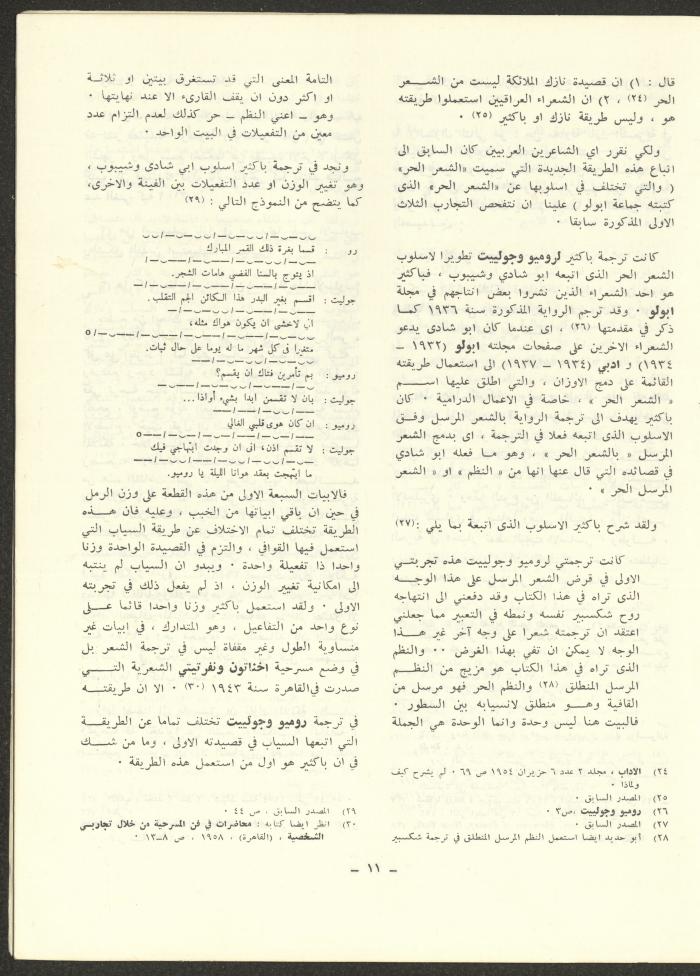 قال : ١) ان قصيدة نازك الملائكة ليست من الشـــعر
الحر (٢٤) ، ٢) ان الشعراء العراقيين استعملوا طريقته
هو ، وليس طريقة نازك او باكثير (٢٥) ٠
ولكي نقرر اي الشاعرين العربيين كان السابق الى
اتباع هذه الطريقة الجديدة التي سميت «الشعر الحر»
( والتي تختلف في اسلوبها عن «الشعر الحر» الذى
كتبته جماعة ابولو ) علينا ان نتفحص التجارب الثلاث
الاولى المذكورة سابقا ٠
كانت ترجمة باكثير لروميو وجولييت تطويرا لاسلوب
الشعر الحر الذى اتبعه ابو شادي وشيبوب ، فباكثير
هو احد الشعراء الذين نشروا بعض انتاجهم في مجلة
ابولو ٠ وقد ترجم الرواية المذكورة سنة ١٩٣٦ كمـا
ذكر في مقدمتها (٢٦) ، اى عندما كان ابو شادى يدعو
الشعراء الاخرين على صفحات مجلته ابولو (١٩٣٢ ــ
١٩٣٤) و ادبي (١٩٣٤ ــ ١٩٣٧) الى استعمال طريقته
القائمة على دمج الاوزان ، والتي اطلق عليها اســـم
« الشعر الحر » ، خاصة في الاعمال الدرامية ٠ كان
باكثير يهدف الى ترجمة الرواية بالشعر المرسل وفــق
الاسلوب الذى اتبعه فعلا في الترجمة ، اى بدمج الشعر
المرسل « بالشعر الحر » ، وهو مـا فعله ابو شادي
في قصائده التي قال عنها انها من « النظم » او « الشعر
المرسل الحر » ٠
ولقد شرح باكثير الاسلوب الذى اتبعة بما يلي :(٢٧)
كانت ترجمتي لروميو وجولييت هذه تجربتــي
الاولى في قرض الشعر المرسل على هذا الوجــه
الذى تراه في هذا الكتاب وقد دفعني الى انتهاجه
روح شكسبير نفسه ونمطه في التعبير مما جعلني
اعتقد ان ترجمته شعرا على وجه آخر غير هـــذا
الوجه لا يمكن ان تفي بهذا الغرض ٠٠ والنظم
الذى تراه في هذا الكتاب هو مزيج من النظـــم
المرسل المنطلق (٢٨) والنظم الحر فهو مرسل من
القافية وهـــو منطلق لانسيابه بين السطور ٠
فالبيت هنا ليس وحدة وانما الوحدة هي الجملة
٢٤) الاداب ، مجلد ٢ عدد ٦ حزيران ١٩٥٤ ص ٦٩ ٠ لم يشرح كيف
ولماذا ٠
٢٥) المصدر السابق ٠
٢٦) روميو وجولييت ،ص٣ ٠
٢٧) المصدر السابق ٠
٢٨) أبو حديد ايضا استعمل النظم المرسل المنطلق في ترجمة شكسبير
التامة المعنى التي قد تستغرق بيتين او ثلاثـــة
او اكثر دون ان يقف القارىء الا عند نهايتها ٠
وهو ــ اعني النظم ــ حر كذلك لعدم التزام عدد
معين من التفعيلات في البيت الواحد ٠
ونجد في ترجمة باكثير اسلوب ابي شادى وشيبوب ،
وهو تغيير الوزن او عدد التفعيلات بين الفينة والاخرى،
كما يتضح من النموذج التالي : (٢٩)
رو : قسما بغرة ذلك القمر المبارك
اذ يتوج بالسنا الفضي هامات الشجر.
جوليت: اقسم بغير البدر هذا الكائن الجم التقلب.
اني لاخشى ان يكون هواك مثله،
متغيرا فى كل شهر ما له يوما على حال ثبات.
روميو : بم تأمرين فتاك ان يقسم؟
جوليت: بان لا تقسمن ابدا بشيء أواذا...
روميو : ان كان هوى قلبي الغالي
جوليت: لا تقسم اذن، انى ان وجدت ابتهاجي فيك
ما ابتهجت بعقد هوانا الليلة يا روميو.
فالابيات السبعة الاولى من هذه القطعة على وزن الرمل
في حين ان باقي ابياتها من الخبب ، وعليه فان هـــذه
الطريقة تختلف تمام الاختلاف عن طريقة السياب التي
استعمل فيها القوافي ، والتزم في القصيدة الواحدة وزنا
واحدا ذا تفعيلة واحدة ٠ ويبدو ان السياب لم ينتبه
الى امكانية تغيير الوزن ، اذ لم يفعل ذلك في تجربته
الاولى ٠ ولقد استعمل باكثير وزنا واحدا قائما علــى
نوع واحد من التفاعيل ، وهو المتدارك ، في ابيات غير
متساوية الطول وغير مقفاة ليس في ترجمة الشعر بل
في وضع مسرحية اخناتون ونفرتيتي الشعرية التـــي
صدرت في القاهرة سنة ١٩٤٣ (٣٠) ٠ الا ان طريقتــه
في ترجمة روميو وجولييت تختلف تماما عن الطريقــة
التي اتبعها السياب في قصيدته الاولى ، وما من شــك
في ان باكثير هو اول من استعمل هذه الطريقة ٠
٢٩) المصدر السابق ، ص ٤٤ ٠
٣٠) انظر ايضا كتابه : محاضرات في فن المسرحية من خلال تجاربــي
الشخصية ، (القاهرة) ، ١٩٥٨ ، ص ٨ــ١٣ ٠
ــ ١١ ــ